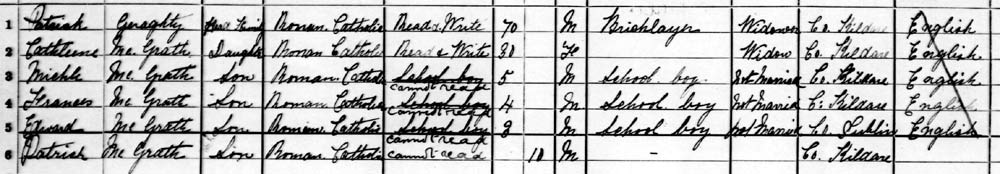 1 Patrick Geraghty Head Family Roman Catholic Read & Write 70 M Bricklayer Widower Co. Kildare English
2 Cathleene Mc Grath Daughter Roman Catholic Read & Write 30 F Widow Co. Kildare English
3 Michle Mc Grath Son Roman Catholic School boy cannot read 5 M School boy Not Married Co. Kildare English
4 Frances Mc Grath Son Roman Catholic School boy cannot read 4 M School boy Not Married Co. Kildare English
5 Edward Mc Grath Son Roman Catholic School boy cannot read 3 M School boy not Married Co. Dublin English
6 Patrick Mc Grath Son Roman Catholic cannot read 10 M - Co. Kildare